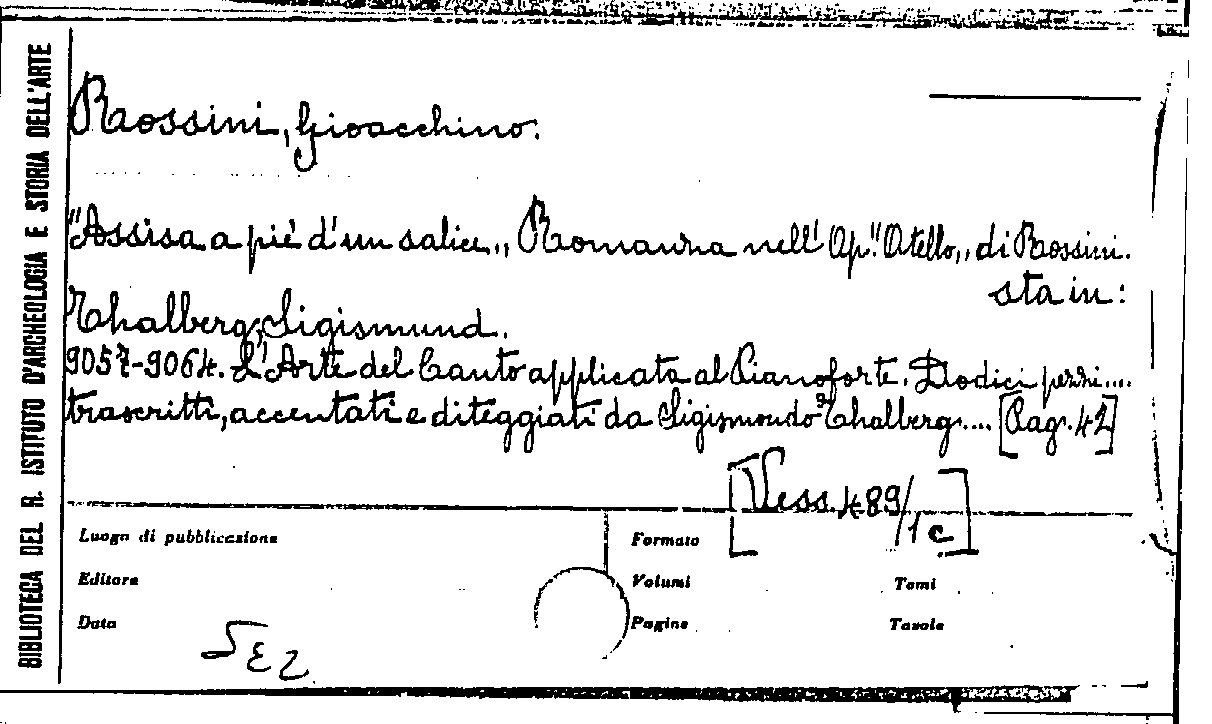 BIBLIOTECA DEL R. ISTITUTO D'ARCHEOLOGIA E STORIA DELL'ARTE
Rossini, Gioacchino.
"Assisa a piè d'un salice„ Romanza nell' Op. "Otello„ di Rossini.
sta in:
Thalberg, Sigismund.
9057-9064. L'Arte del Canto applicata al Pianoforte. Dodici pezzi....
trascritti, accentati e diteggiati da Sigismondo Thalberg.... [Pag. 42]
[Vess. 489/1c]
Luogo di pubblicazione
Formato
Editore
Volumi
Tomi
Data
Pagine
Tavole